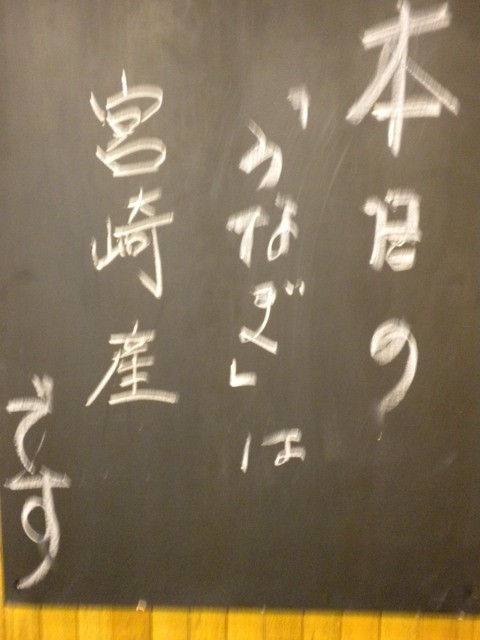 本日の
「うなぎ」は
宮崎産
です